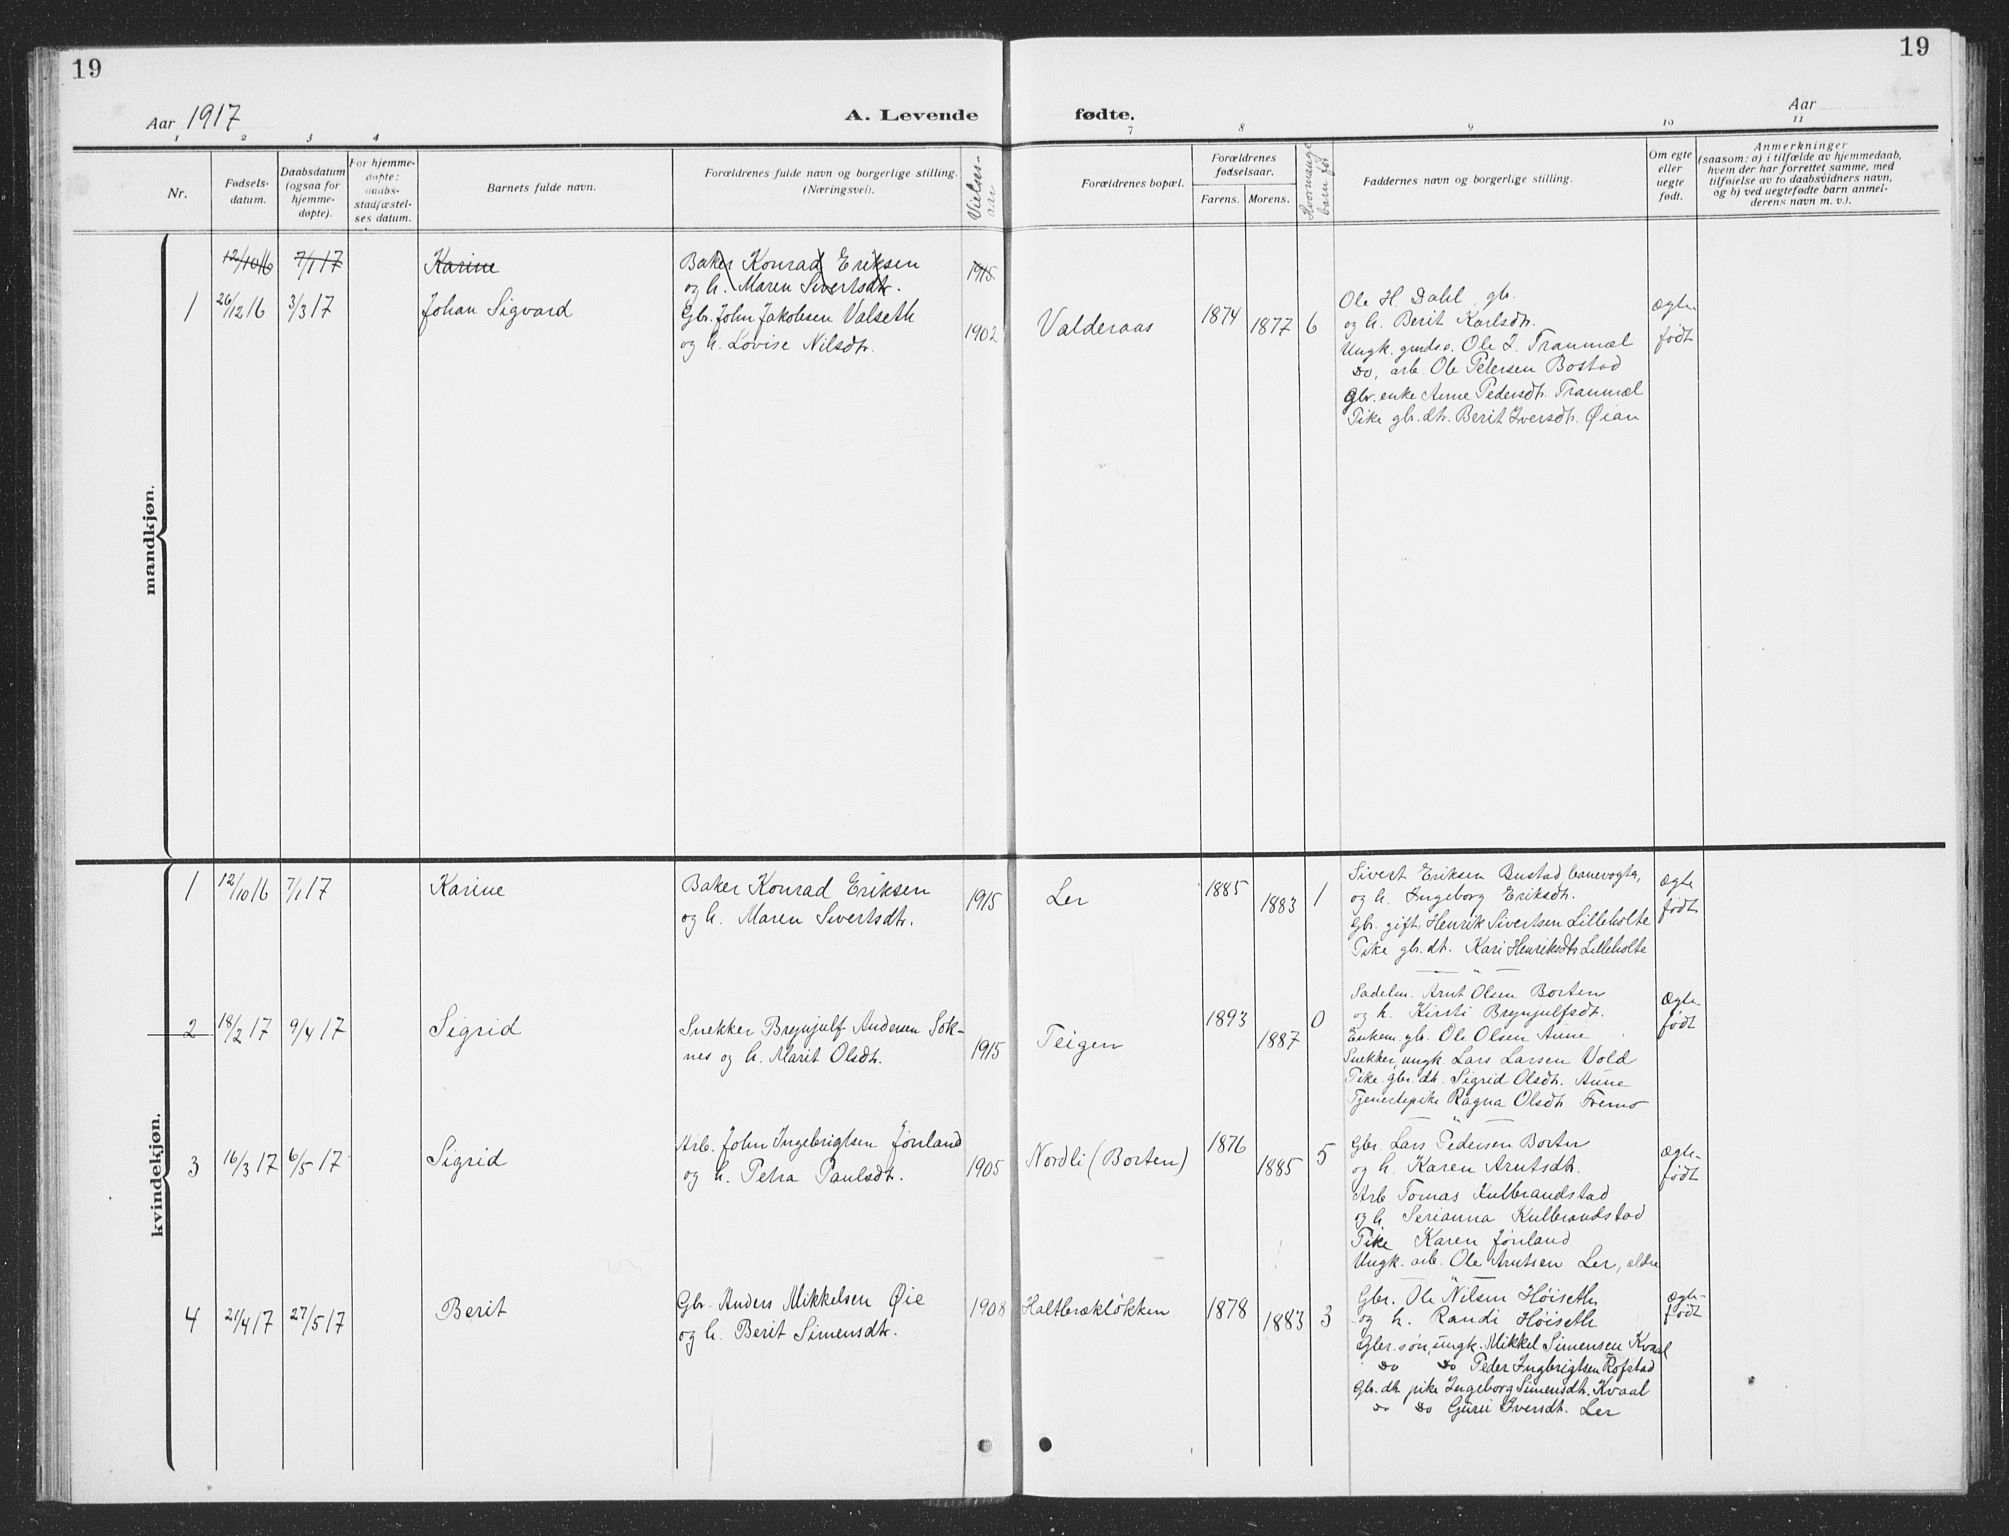 19
19
Aar 1917
A. Levende fødte.
Aar
1 2 3 4 7 8 9 10 11
Nr.
Fødsels-
datum.
Daabsdatum
(ogsaa for
hjemme-
døpte).
For hjemme-
døpte:
daabs-
stadfæstel-
ses datum.
Barnets fulde navn.
Forældrenes fulde navn og borgerlige stilling.
(Næringsvei).
Vielses-
aar
Forældrenes bopæl.
Forældrenes
fødselsaar.
Farens. Morens.
Hvormange
barn før
Faddernes navn og borgerlige stilling.
Om egte
eller
uegte
født.
Anmerkninger
(saasom: a) i tilfælde av hjemmedaab,
hvem der har forrettet samme, med
tilføielse av to daabsvidners navn,
og b) ved uegtefødte barn anmel-
derens navn m. v.).
mandkjøn.
12/10 16 7/1 17 Karine
Baker Konrad Eriksen
og h. Maren Sivertsdtr.
1915
1 26/12 16 3/3 17 Johan Sigvard
Gbr. John Jakobsen Valseth
og h. Lovise Nilsdtr.
1902 Valderaas 1874 1877 6
Ole H. Dahl, gbr.
og h. Berit Karlsdtr.
Ungk. gmds. Ole J. Tranmæl
Do, arb. Ole Petersen Bostad
Gbr. enke Anne Pedersdtr. Tranmæl
Pike gbr. dtr. Berit Iversdtr. Øian
Ægte
født
kvindekjøn.
1 12/10 16 7/1 17 Karine
Baker Konrad Eriksen
og h. Maren Sivertsdtr.
1915 Ler 1885 1883 1
Sivert Eriksen Bustad banevogter,
og h. Ingeborg Eriksdtr.
Gbr. gift, Henrik Sivertsen Lilleholte
Pike gbr. dt. Kari Henriksdtr Lilleholte
Ægte
født
2 18/2 17 9/4 17 Sigrid
Snekker Brynjulf Andersen Sok-
nes og h. Marit Olsdtr.
1915 Teigen 1893 1887 0
Sadelm. Arnt Olsen Borten
og h. Kirsti Brynjulfsdt.
Enkem. gb. Ole Olsen Aune
Snekker, ungk Lars Larsen Vold
Pike. gbr. dt. Sigrid Olsdtr. Aune
Tjenestepike Ragna Olsdtr. Fremo
Ægte-
født
3 16/3 17 6/5 17 Sigrid
Arb. John Ingebrigtsen Jønland
og h. Petra Paulsdtr.
1905 Nordli (Borten) 1876 1885 5
Gbr. Lars Pedersen Borten
og h. Karen Arntsdtr.
Arb. Tomas Kulbrandstad
og h. Serianna Kulbrandstad
Pike Karen Jønland
Ungk. arb. Ole Arntsen Ler, ældre
Ægte-
født
4 21/4 17 27/5 17 Berit
Gbr. Anders Mikkelsen Øie
og h. Berit Simensdtr.
1908 Haltbrækløkken 1878 1883 3
Gbr. Ole Nilsen Høiseth
og h. Randi Høiseth
Gbr. søn, ungk. Mikkel Simensen Kvaal
Do Do Peder Ingbrigtsen Rofstad
Gbr. dt. pike Ingeborg Simensdt. Kvaal
Do Do Guru Iversdt. Ler
Ægte-
født